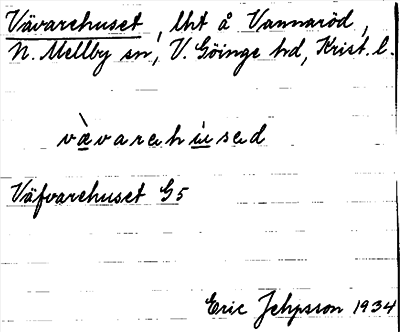 Vävarehuset, lht å Vannaröd,
N. Mellby sn, V. Göinge hd, Krist. l.
vä̀varehúsed
Väfvarehuset G5
Eric Jehpsson 1934